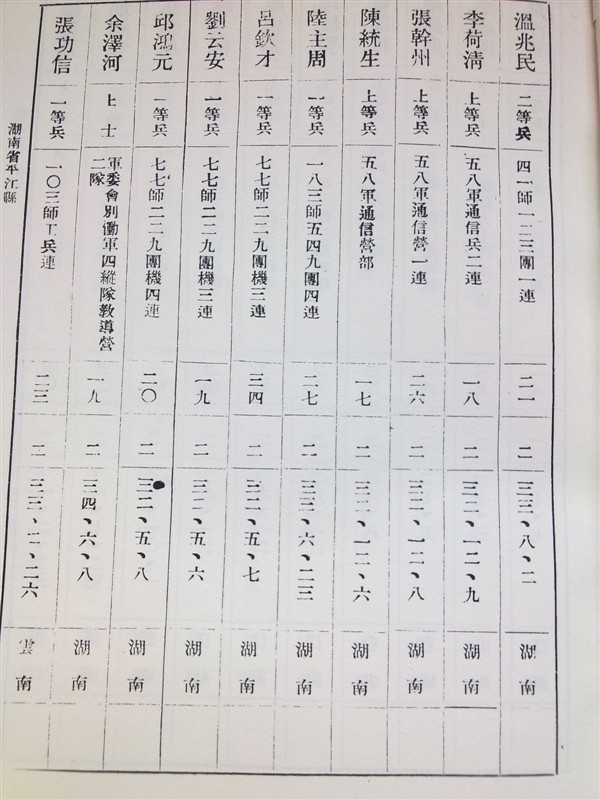 溫兆民 二等兵 四一師一二三團一連 二一 二 三三、八、二 湖南
李荷清 上等兵 五八軍通信兵二連 一八 二 三二、一二、九 湖南
張幹州 上等兵 五八軍通信營一連 二六 二 三三、一二、八 湖南
陳統生 上等兵 五八軍通信營部 一七 二 三二、一二、六 湖南
陸主周 一等兵 一八三師五四九團四連 二七 二 三三、六、二三 湖南
呂欽才 一等兵 七七師二二九團機三連 三四 二 三二、五、七 湖南
劉云安 一等兵 七七師二二九團機三連 一九 二 三二、五、六 湖南
邱鴻元 一等兵 七七師二二九團機四連 二〇 二 三二、五、八 湖南
余澤河 上士 軍委會別働軍四縱隊教導營二隊 一九 二 三四、六、八 湖南
張功信 一等兵 一〇三師工兵連 二三 二 三三、二、二六 雲南
湖南省平江縣